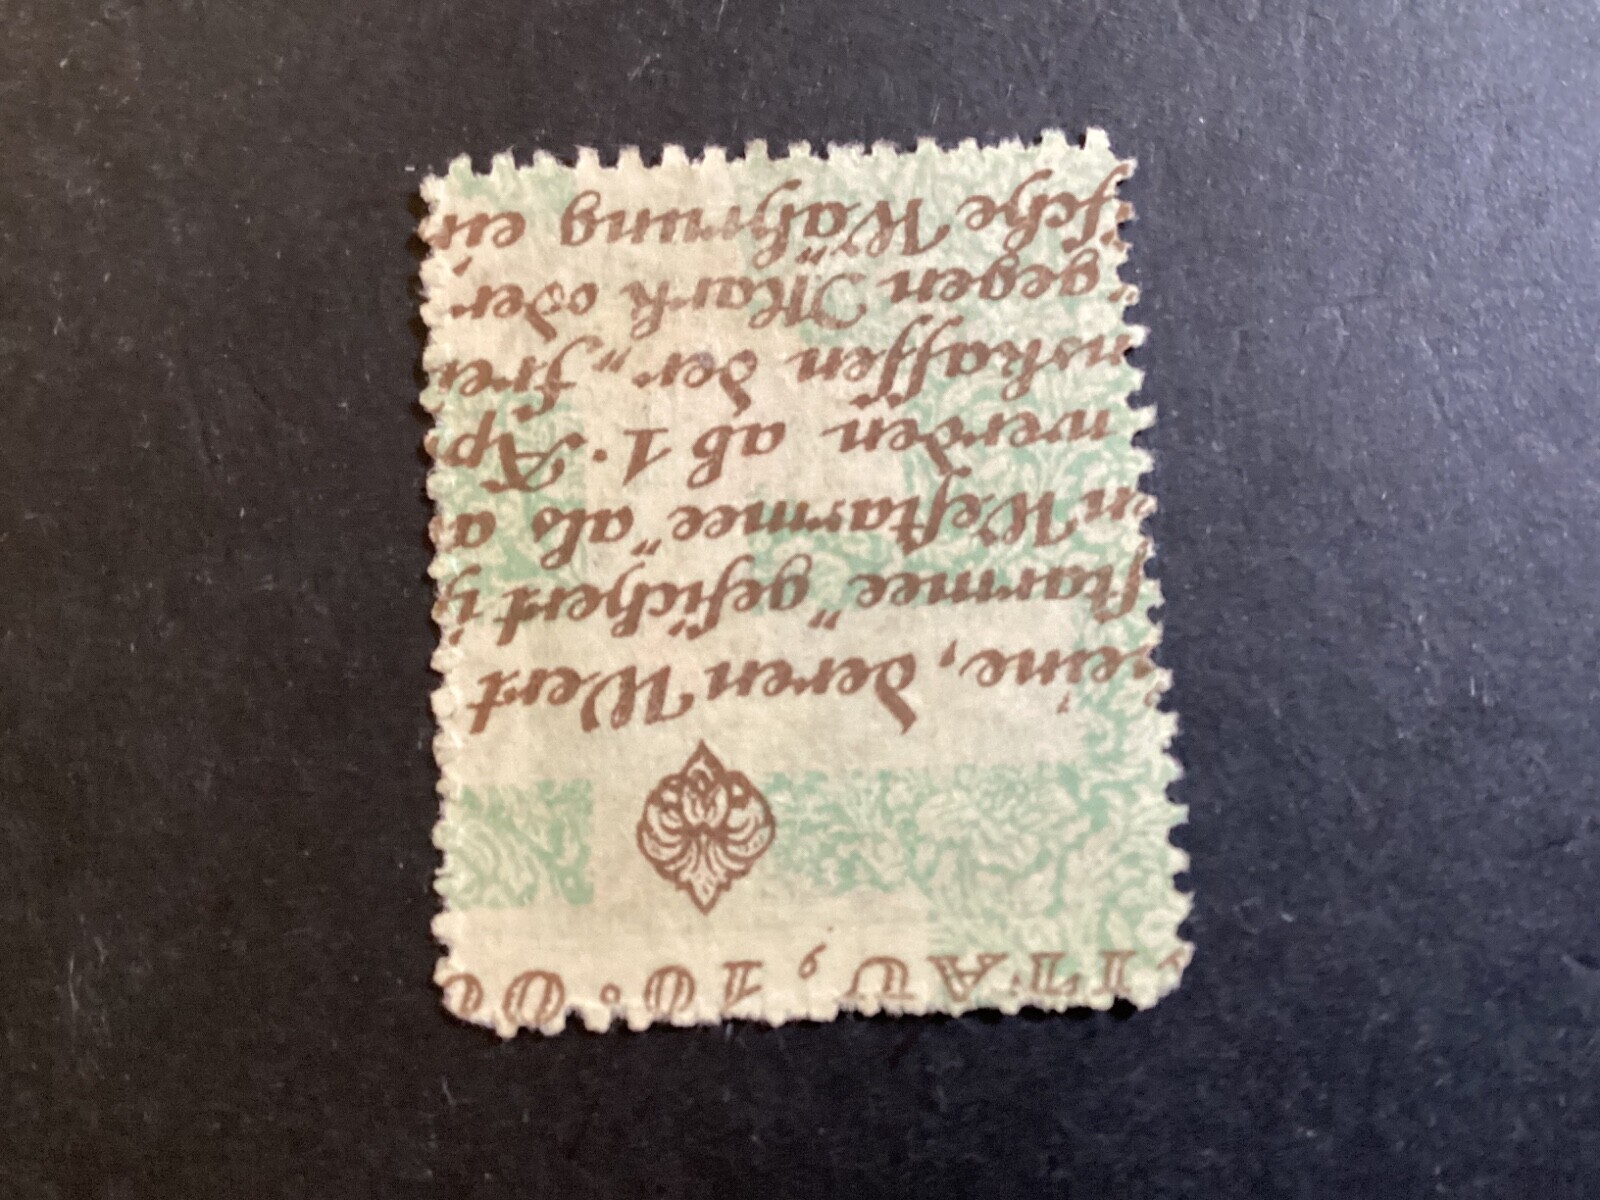 ITAU, 10. O
eine, deren Wert
ſtarmee“ geſichert i
n Weſtarmee“ als a
werden ab 1. Ap
nskaſſen der „Frei
gegen Mark oder
ſche Währung ein